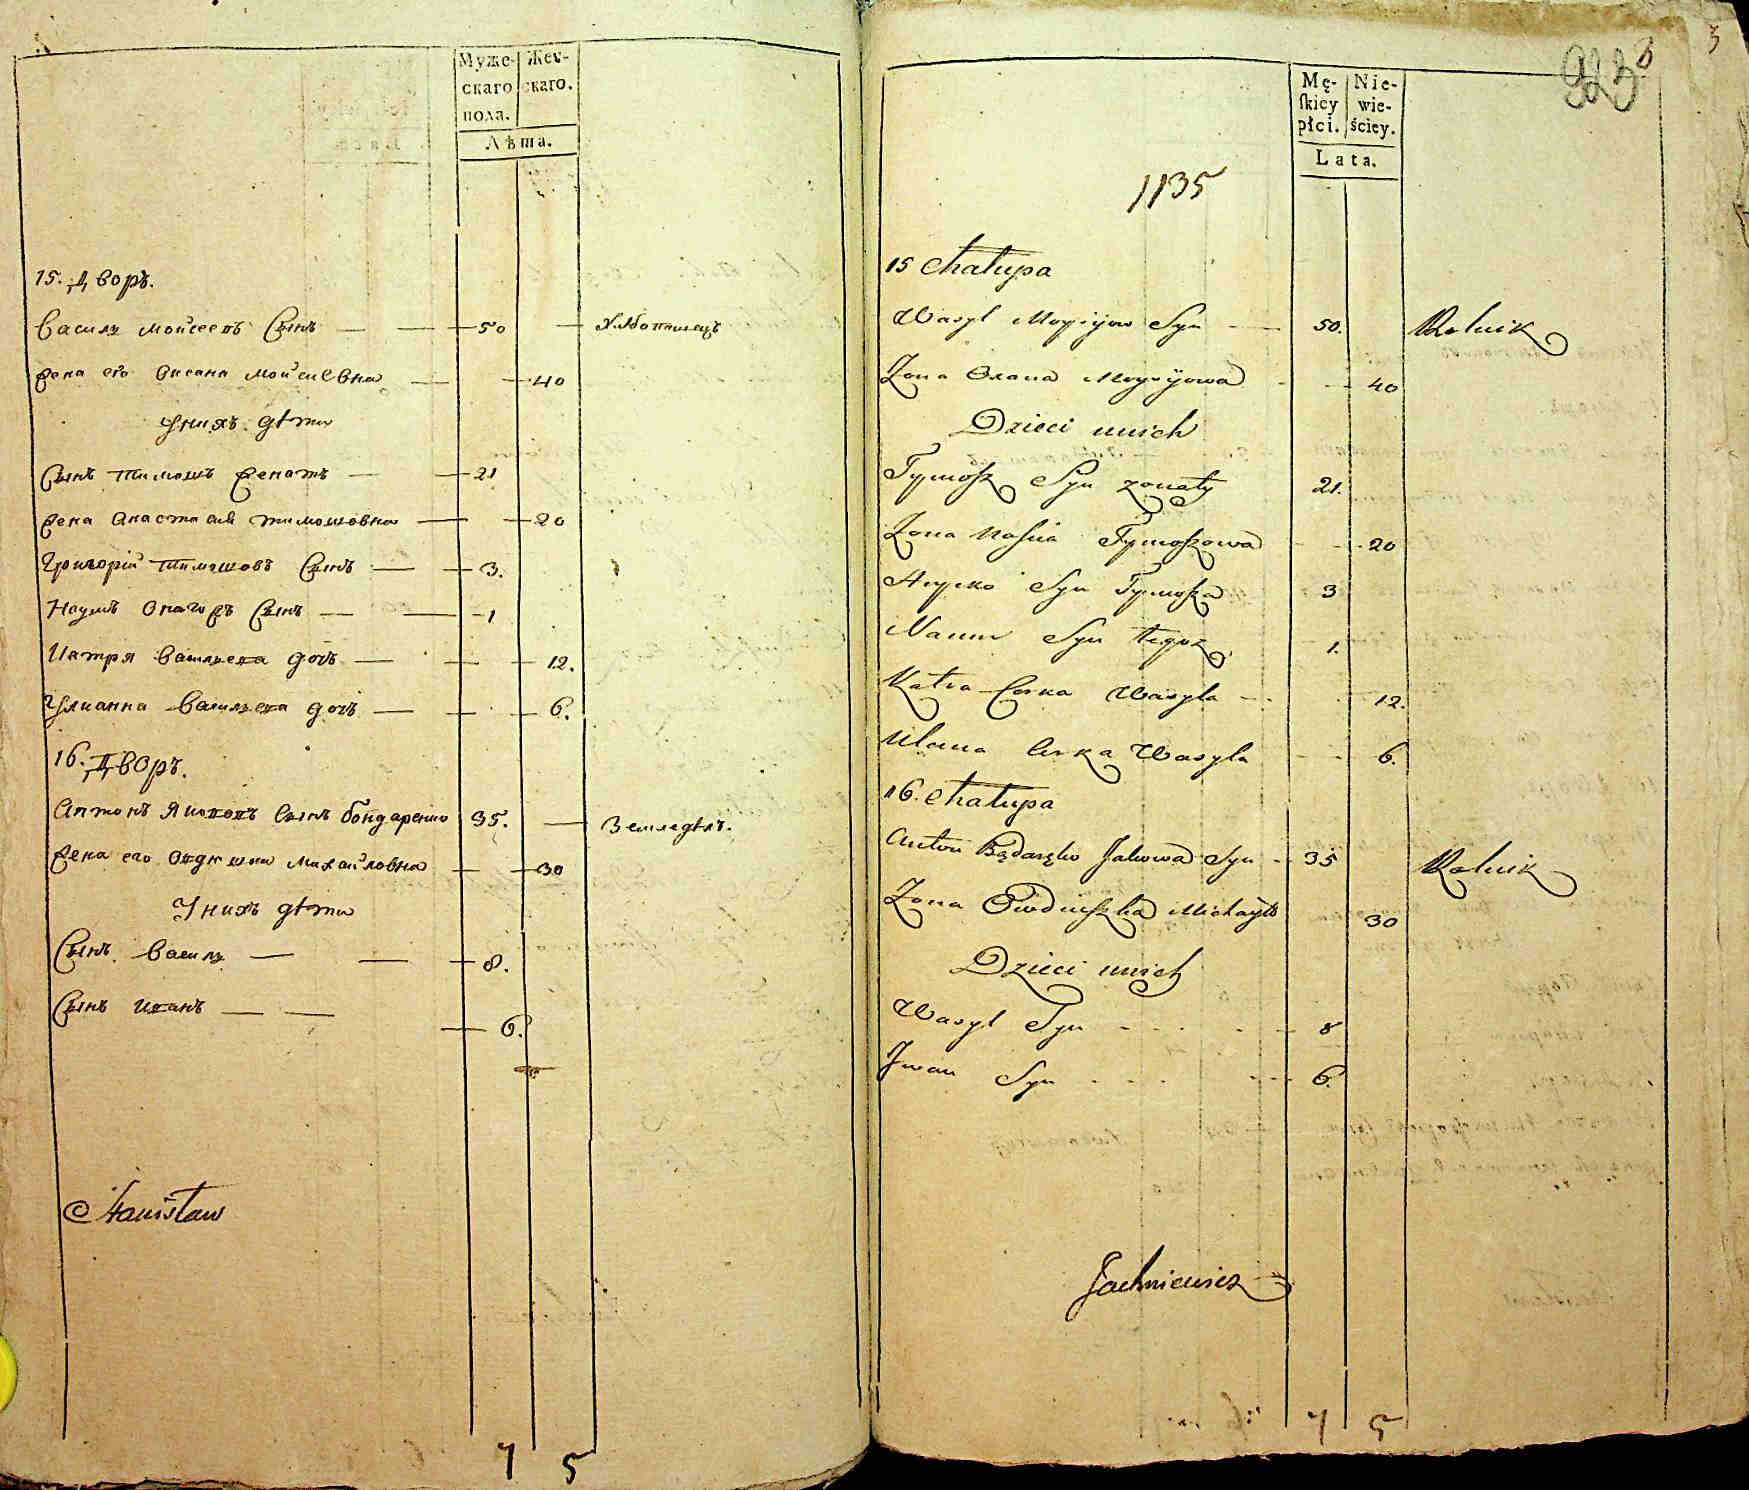 Муже-
скаго
пола.
Жен-
скаго.
Лѣта.
15. Дворъ.
Василь Мойсеевъ Сынъ 50 Хлѣбопашецъ
Жена его Оксана Мойсиевна 40
У нихъ дѣти
Сынъ Тимошъ Женатъ 21
Жена Анастасия Тимошовна 20
Григорій Тимошовъ Сынъ 3.
Наумъ Онагожъ Сынъ 1
Катря Васильева дочь 12.
Улианна Васильева дочь 6.
16. Дворъ.
Антонъ Яковъ Сынъ Бондаренко 35. Земледѣл.
Жена его Михайловна 30
У нихъ дѣти
Сынъ Василь 8.
Сынъ Иванъ 6.
Stanisław
7 5
923
3
3
Mę-
ſkiey
płci.
Nie-
wie-
ściey.
Lata.
1135
15 Chałupa
Wasyl Moysijow Syn 50. Rolnik
Zona Oxana Moysijowa 40
Dzieci unich
Tymosz Syn zonaty 21.
Zona Nascia Tymoszowa 20
Hryćko Syn Tymosza 3
Naum Syn tegoz 1.
Katra Corka Wasyla 12.
Ulana Corka Wasyla 6.
16. Chałupa
Anton Bądaręko Jakowa Syn 35 Rolnik
Zona Owdiuszka Michayło 30
Dzieci unich
Wasyl Syn 8
Jwan Syn 6.
Jachniewicz
7 5